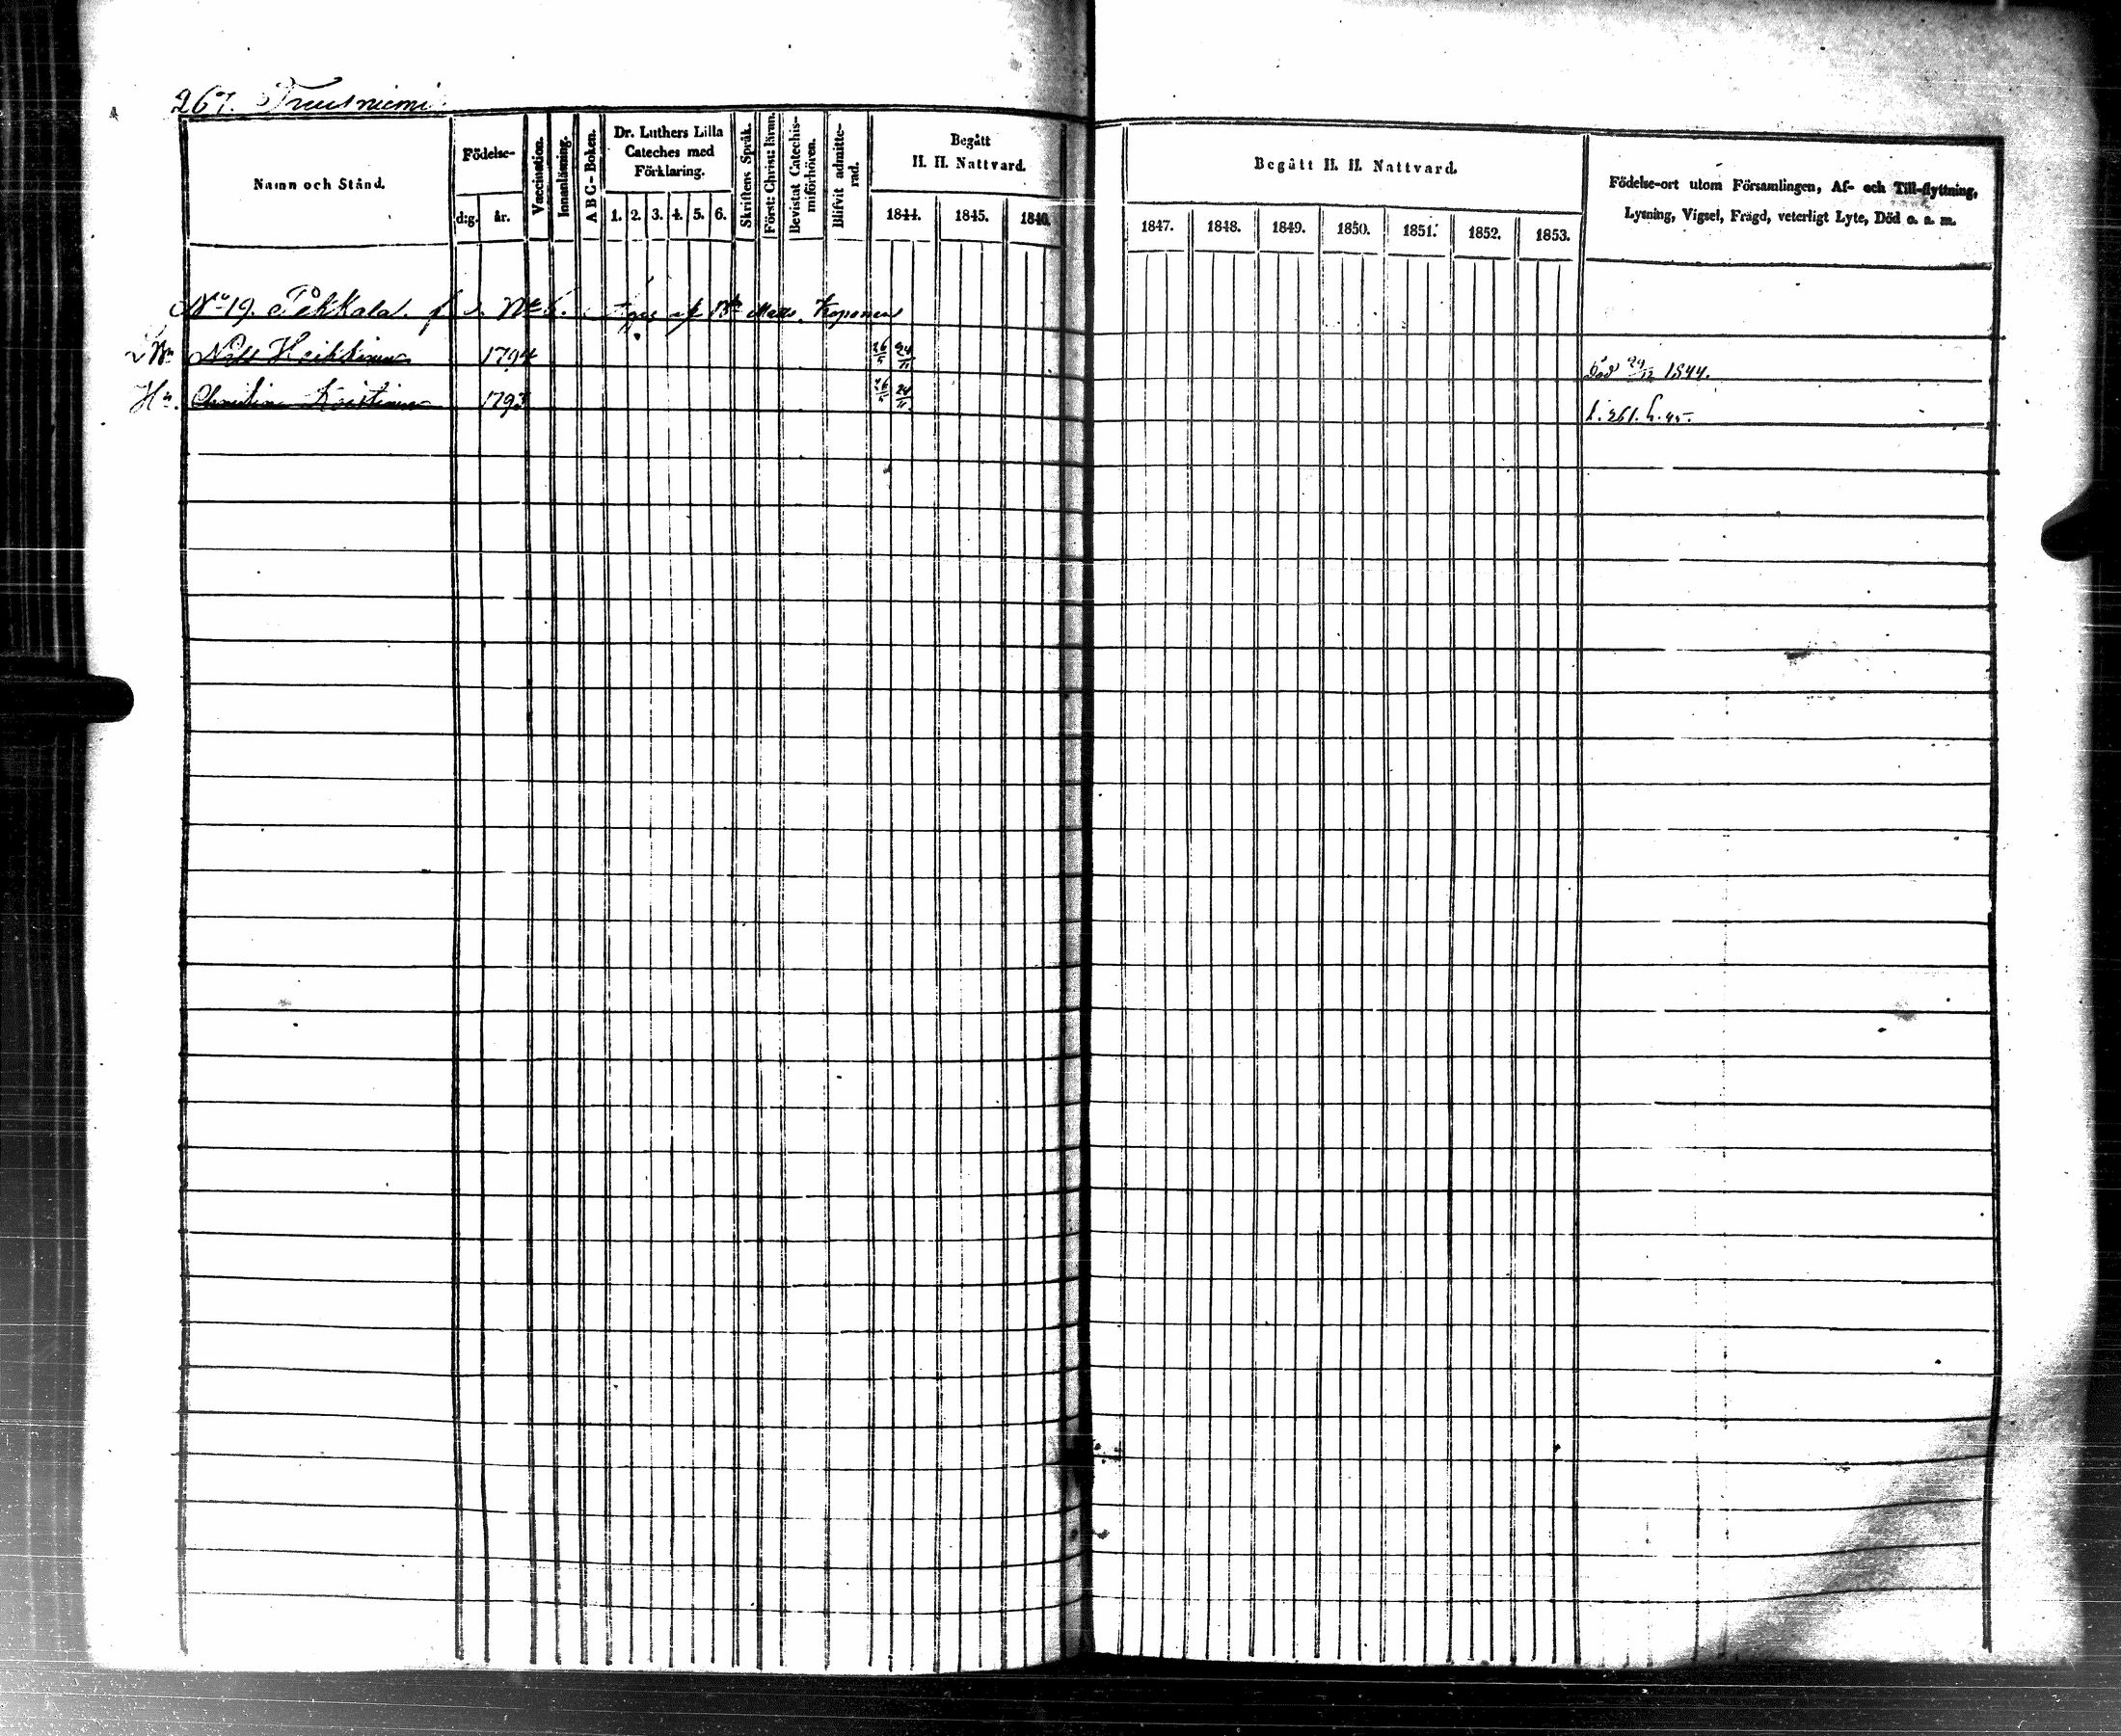 267. Truutniemi
Namn och Stånd.
Födelse-
d:g. år.
Vaccination.
Innanläsning.
A B C-Boken.
Dr. Luthers Lilla
Cateches med
Förklaring.
1. 2. 3. 4. 5. 6.
Skriftens Språk.
Först: Christ: lärun.
Bevistat Catechis-
miförhören.
Blifvit admitte-
rad.
Begått
H. H. Nattvard.
1844. 1845. 1846.
Begått H. H. Nattvard.
1847. 1848. 1849. 1850. 1851. 1852. 1853.
Födelse-ort utom Församlingen, Af- och Till-flyttning,
Lysning, Vigsel, Frägd, veterligt Lyte, Död o. s. m.
No 19. Pekkala. No 6. af Bn Matts Koponen
Bn Heikkinen 1794 26/5 24/11 Död 29/12 1844.
Hu. Christina 1793 26/5 24/11 f. 261. h. 45.